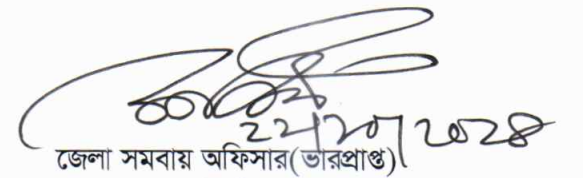 ২২/১০/২০২৪
জেলা সমবায় অফিসার(ভারপ্রাপ্ত)